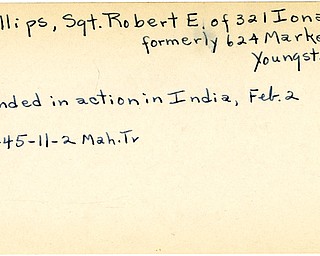 llips, Sgt. Robert E. of 321 Iona
formerly 624 Marke
Youngst
nded in action in India, Feb. 2
-45-11-2 Mah. Tr